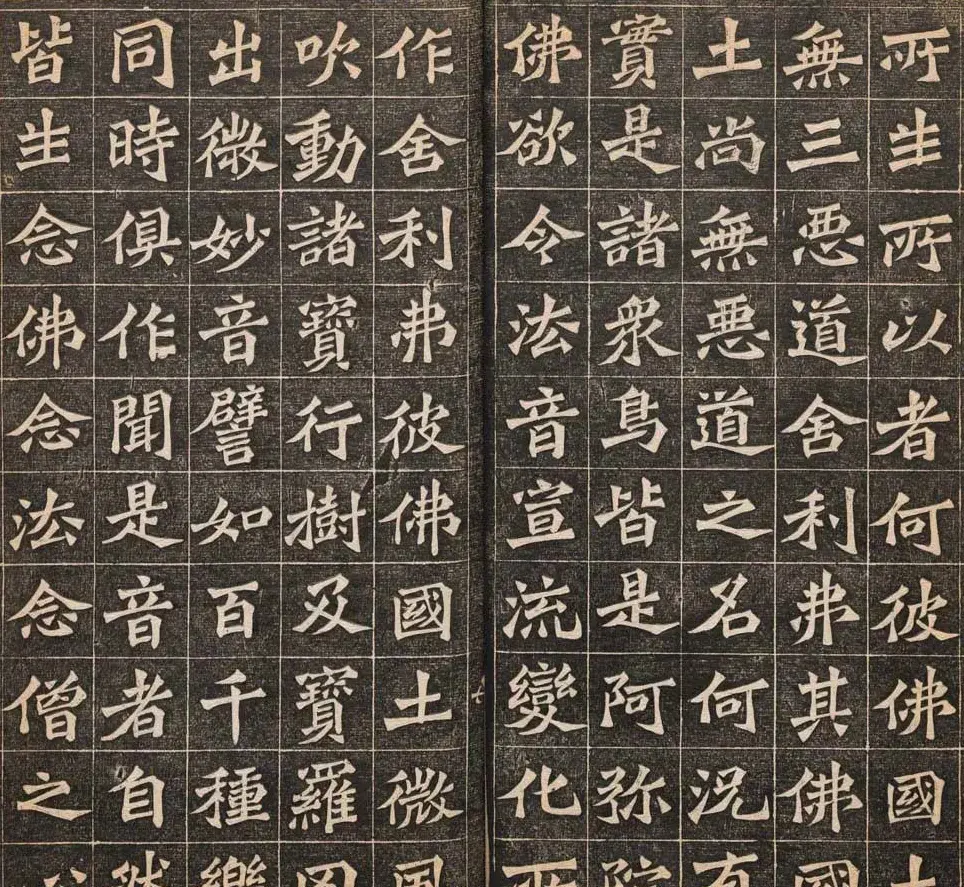 所生所以者何彼佛國土
無三悪道舍利弗其佛國
土尚無悪道之名何況有
實是諸衆鳥皆是阿弥陀
佛欲令法音宣流變化所
作舍利弗彼佛國土微風
吹動諸寳行樹及寳羅
出微妙音譬如百千種樂
同時俱作聞是音者自然
皆生念佛念法念僧之